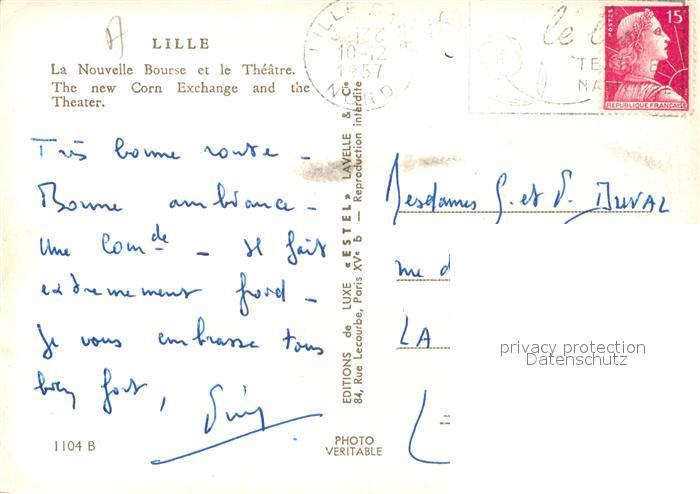 LILLE
La Nouvelle Bourse et le Théâtre.
The new Corn Exchange and the
Theater.
Très bonne route _
Bonne ambiance _
Une Com de _ Il fait
extrêmement froid _
Je vous embrasse tous
bien fort,
1104 B
EDITIONS de LUXE «ESTEL» LAVELLE & Cie
84, Rue Lecourbe, Paris XVe b — Reproduction interdite
PHOTO
VERITABLE
LILLE
10-12
1957
NORD
POSTES
15F
REPUBLIQUE FRANÇAISE
Mesdames G. et P. DUVAL
rue d
LA
privacy protection
Datenschutz